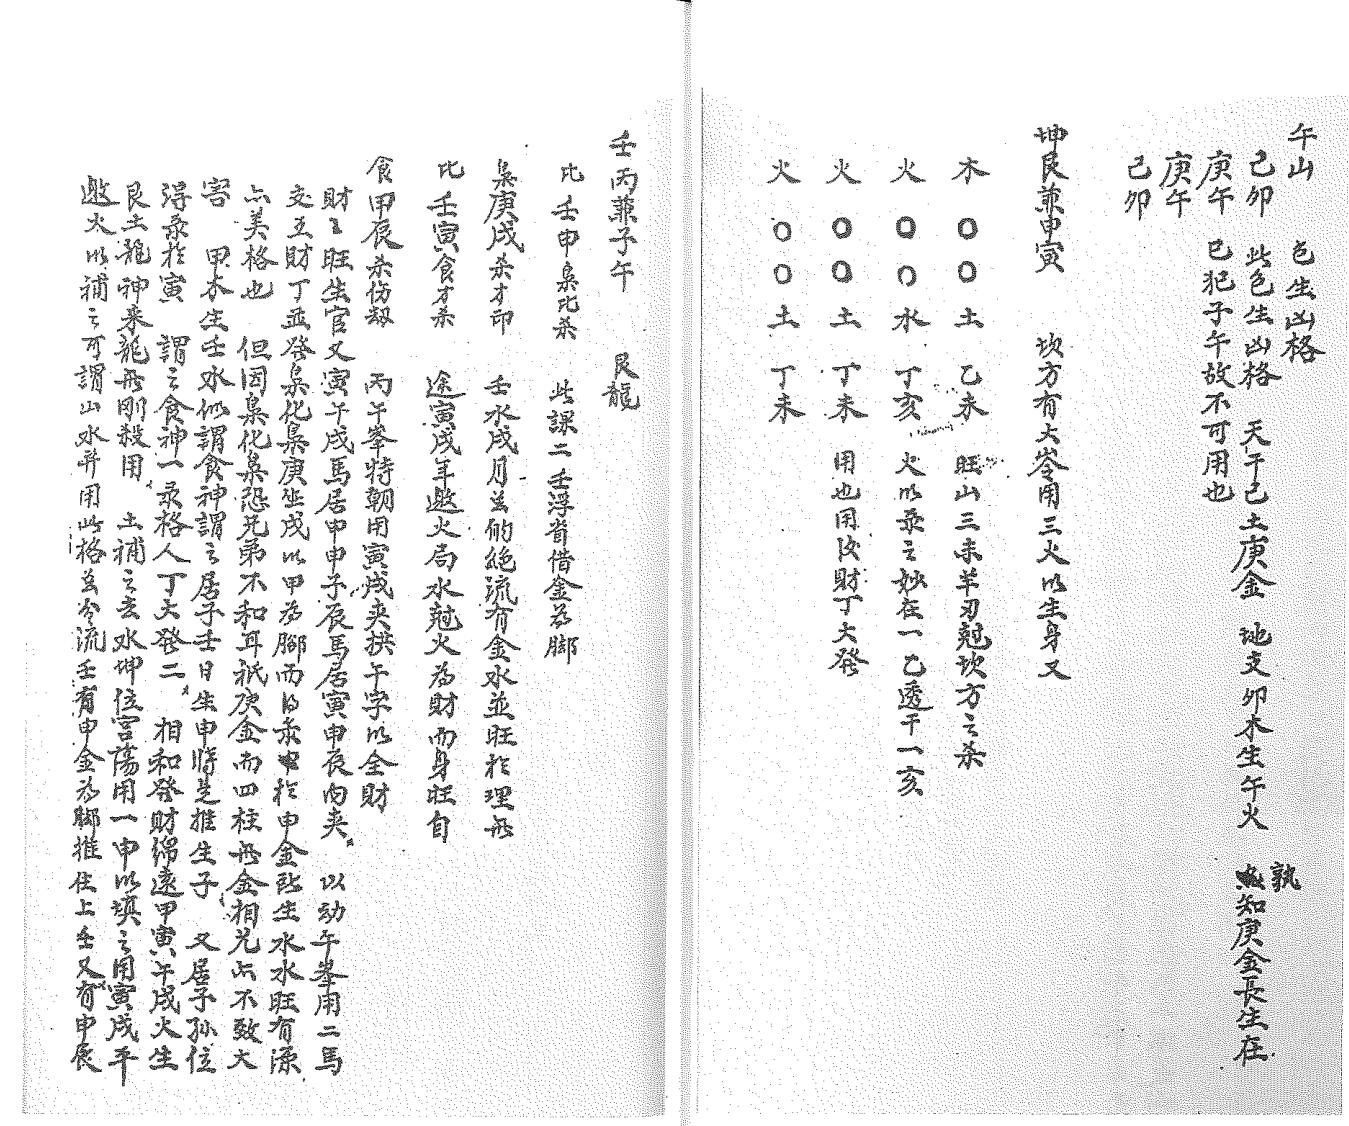 午山 包生凶格
己卯 此包生凶格 天干己土庚金 地支卯木生午火 孰知庚金長生在
庚午 巳犯子午故不可用也
庚午
己卯
坤艮兼申寅 坎方有大峯用三火以生身又
木〇〇土 乙未 旺山三未羊刃尅坎方之杀
火〇〇水 丁亥 火以彔之妙在一乙透干一亥
火〇〇土 丁未 用也用後財丁大發
火〇〇土 丁未
壬丙兼子午 艮龍
比壬申梟比杀 此課二壬浮省借金為腳
梟庚戌杀才印 壬水戌月並的絶流有金水並旺於理無
比壬寅食才杀 途寅戌年邀火局水尅火為財而身旺自
食甲辰杀伤刼 丙午峯特朝用寅戌夾拱午字以全財
財々旺生官又寅午戌馬居申申子辰馬居寅申辰向夹 以动午峯用二馬
交五財丁並發梟化梟庚坐戌以甲為腳而的彔申於申金臨生水水旺有深
亦美格也 但因梟化梟恐兄弟不和耳祇庚金而四柱無金相兄亦不致大
害 甲木生壬水似謂食神謂之居子壬日生申將是推生子 又居子孙位
得彔於寅 謂之食神一彔格人丁大發二 相和發財綿遠甲寅午戌火生
艮土龍神来龍無剛殺用 土補之去水坤位宫蕩用一申以填之用寅戌平
邀火以補之可謂山水并用此格並令流壬有申金為腳推住上壬又有申辰